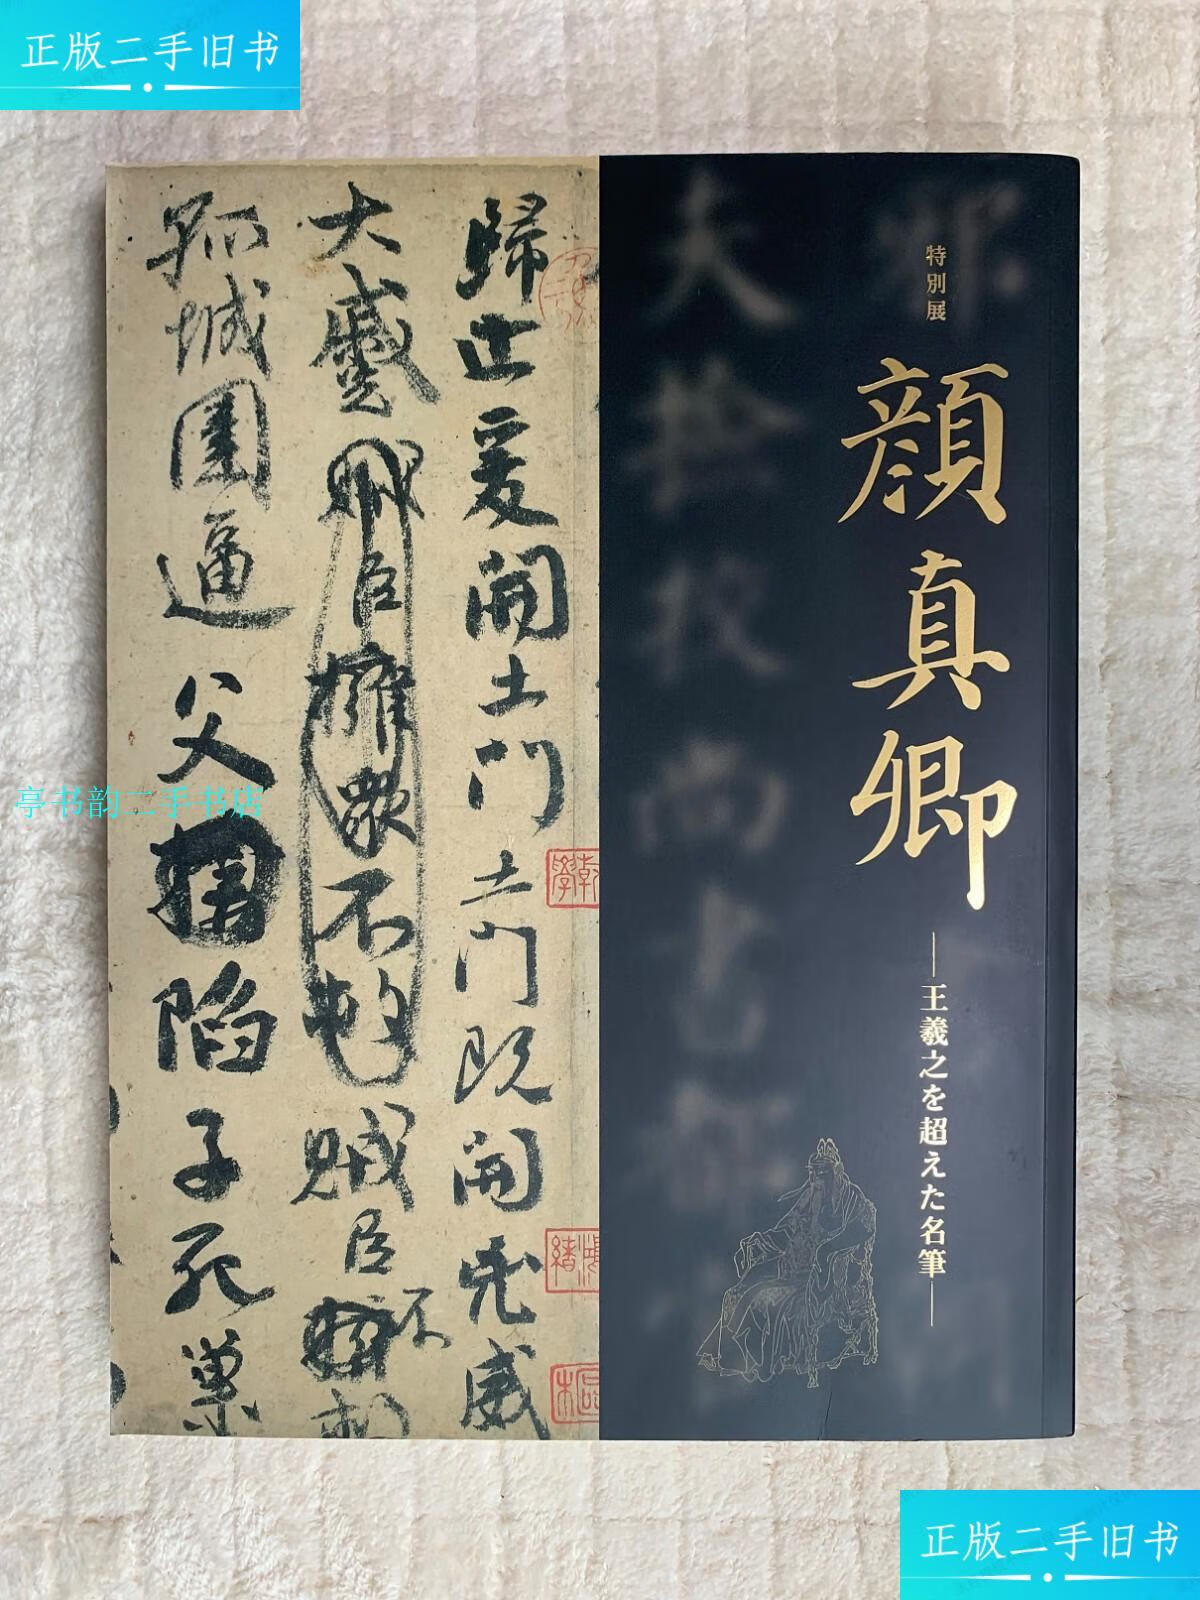 正版二手旧书
特別展
顔真卿
王羲之を超えた名筆
歸止爰開土門土門既開兇威
大蹙
臣擁衆不救
賊臣不
孤城圍逼父陷子死巢
亭书韵二手书店
正版二手旧书